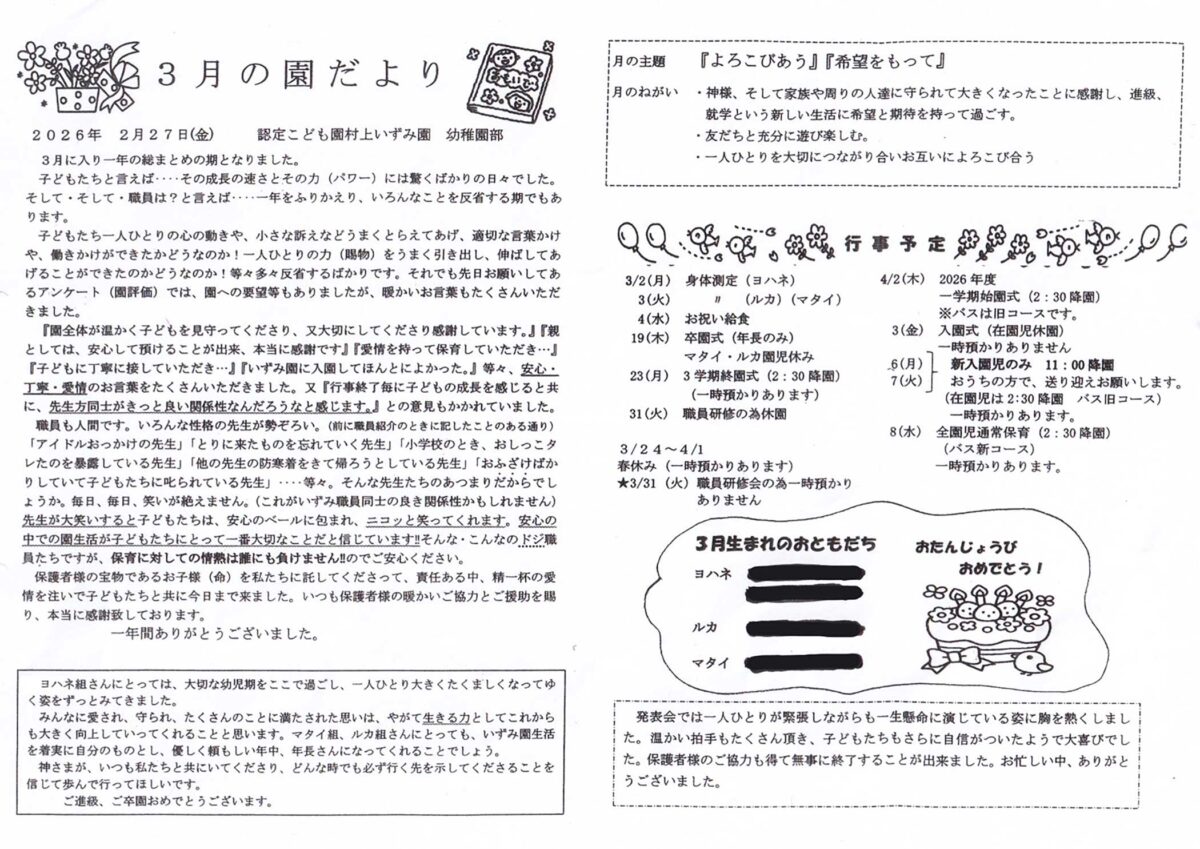 おもいで
3月の園だより
2026年　2月27日(金)　　認定こども園村上いずみ園　幼稚園部
３月に入り一年の総まとめの期となりました。
子どもたちと言えば‥‥その成長の速さとその力（パワー）には驚くばかりの日々でした。
そして・そして・職員は？と言えば‥‥一年をふりかえり、いろんなことを反省する期でもあ
ります。
子どもたち一人ひとりの心の動きや、小さな訴えなどうまくとらえてあげ、適切な言葉かけ
や、働きかけができたかどうなのか！一人ひとりの力（賜物）をうまく引き出し、伸ばしてあ
げることができたのかどうなのか！等々多々反省するばかりです。それでも先日お願いしてあ
るアンケート（園評価）では、園への要望等もありましたが、暖かいお言葉もたくさんいただ
きました。
『園全体が温かく子どもを見守ってくださり、又大切にしてくださり感謝しています。』『親
としては、安心して預けることが出来、本当に感謝です』『愛情を持って保育していただき…』
『子どもに丁寧に接していただき…』『いずみ園に入園してほんとによかった。』等々、安心・
丁寧・愛情のお言葉をたくさんいただきました。又『行事終了毎に子どもの成長を感じると共
に、先生方同士がきっと良い関係性なんだろうなと感じます。』との意見もかかれていました。
職員も人間です。いろんな性格の先生が勢ぞろい。（前に職員紹介のときに記したことのある通り）
「アイドルおっかけの先生」「とりに来たものを忘れていく先生」「小学校のとき、おしっこタ
レたのを暴露している先生」「他の先生の防寒着をきて帰ろうとしている先生」「おふざけばか
りしていて子どもたちに叱られている先生」‥‥等々。そんな先生たちのあつまりだからでし
ょうか。毎日、毎日、笑いが絶えません。（これがいずみ職員同士の良き関係性かもしれません）
先生が大笑いすると子どもたちは、安心のベールに包まれ、ニコッと笑ってくれます。安心の
中での園生活が子どもたちにとって一番大切なことだと信じています‼そんな・こんなのドジ職
員たちですが、保育に対しての情熱は誰にも負けません‼のでご安心ください。
保護者様の宝物であるお子様（命）を私たちに託してくださって、責任ある中、精一杯の愛
情を注いで子どもたちと共に今日まで来ました。いつも保護者様の暖かいご協力とご援助を賜
り、本当に感謝致しております。
一年間ありがとうございました。
ヨハネ組さんにとっては、大切な幼児期をここで過ごし、一人ひとり大きくたくましくなってゆ
く姿をずっとみてきました。
みんなに愛され、守られ、たくさんのことに満たされた思いは、やがて生きる力としてこれから
も大きく向上していってくれることと思います。マタイ組、ルカ組さんにとっても、いずみ園生活
を着実に自分のものとし、優しく頼もしい年中、年長さんになってくれることでしょう。
神さまが、いつも私たちと共にいてくださり、どんな時でも必ず行く先を示してくださることを
信じて歩んで行ってほしいです。
ご進級、ご卒園おめでとうございます。
月の主題　『よろこびあう』『希望をもって』
月のねがい　・神様、そして家族や周りの人達に守られて大きくなったことに感謝し、進級、
就学という新しい生活に希望と期待を持って過ごす。
・友だちと充分に遊び楽しむ。
・一人ひとりを大切につながり合いお互いによろこび合う
行事予定
3/2(月)　身体測定（ヨハネ）
3(火)　〃　（ルカ）（マタイ）
4(水)　お祝い給食
19(木)　卒園式（年長のみ）
マタイ・ルカ園児休み
23(月)　３学期終園式（2：30降園）
（一時預かりあります）
31(火)　職員研修の為休園
３/２４～４/１
春休み（一時預かりあります）
★3/31（火）職員研修会の為一時預かり
ありません
4/2(木)　2026年度
一学期始園式（2：30降園）
※バスは旧コースです。
3(金)　入園式（在園児休園）
一時預かりありません
6(月)　新入園児のみ　11：00降園
7(火)　おうちの方で、送り迎えお願いします。
（在園児は2:30降園　バス旧コース）
一時預かりあります。
8(水)　全園児通常保育（2：30降園）
（バス新コース）
一時預かりあります。
３月生まれのおともだち
おたんじょうび
おめでとう！
ヨハネ
ルカ
マタイ
発表会では一人ひとりが緊張しながらも一生懸命に演じている姿に胸を熱くしまし
た。温かい拍手もたくさん頂き、子どもたちもさらに自信がついたようで大喜びでし
た。保護者様のご協力も得て無事に終了することが出来ました。お忙しい中、ありがと
うございました。